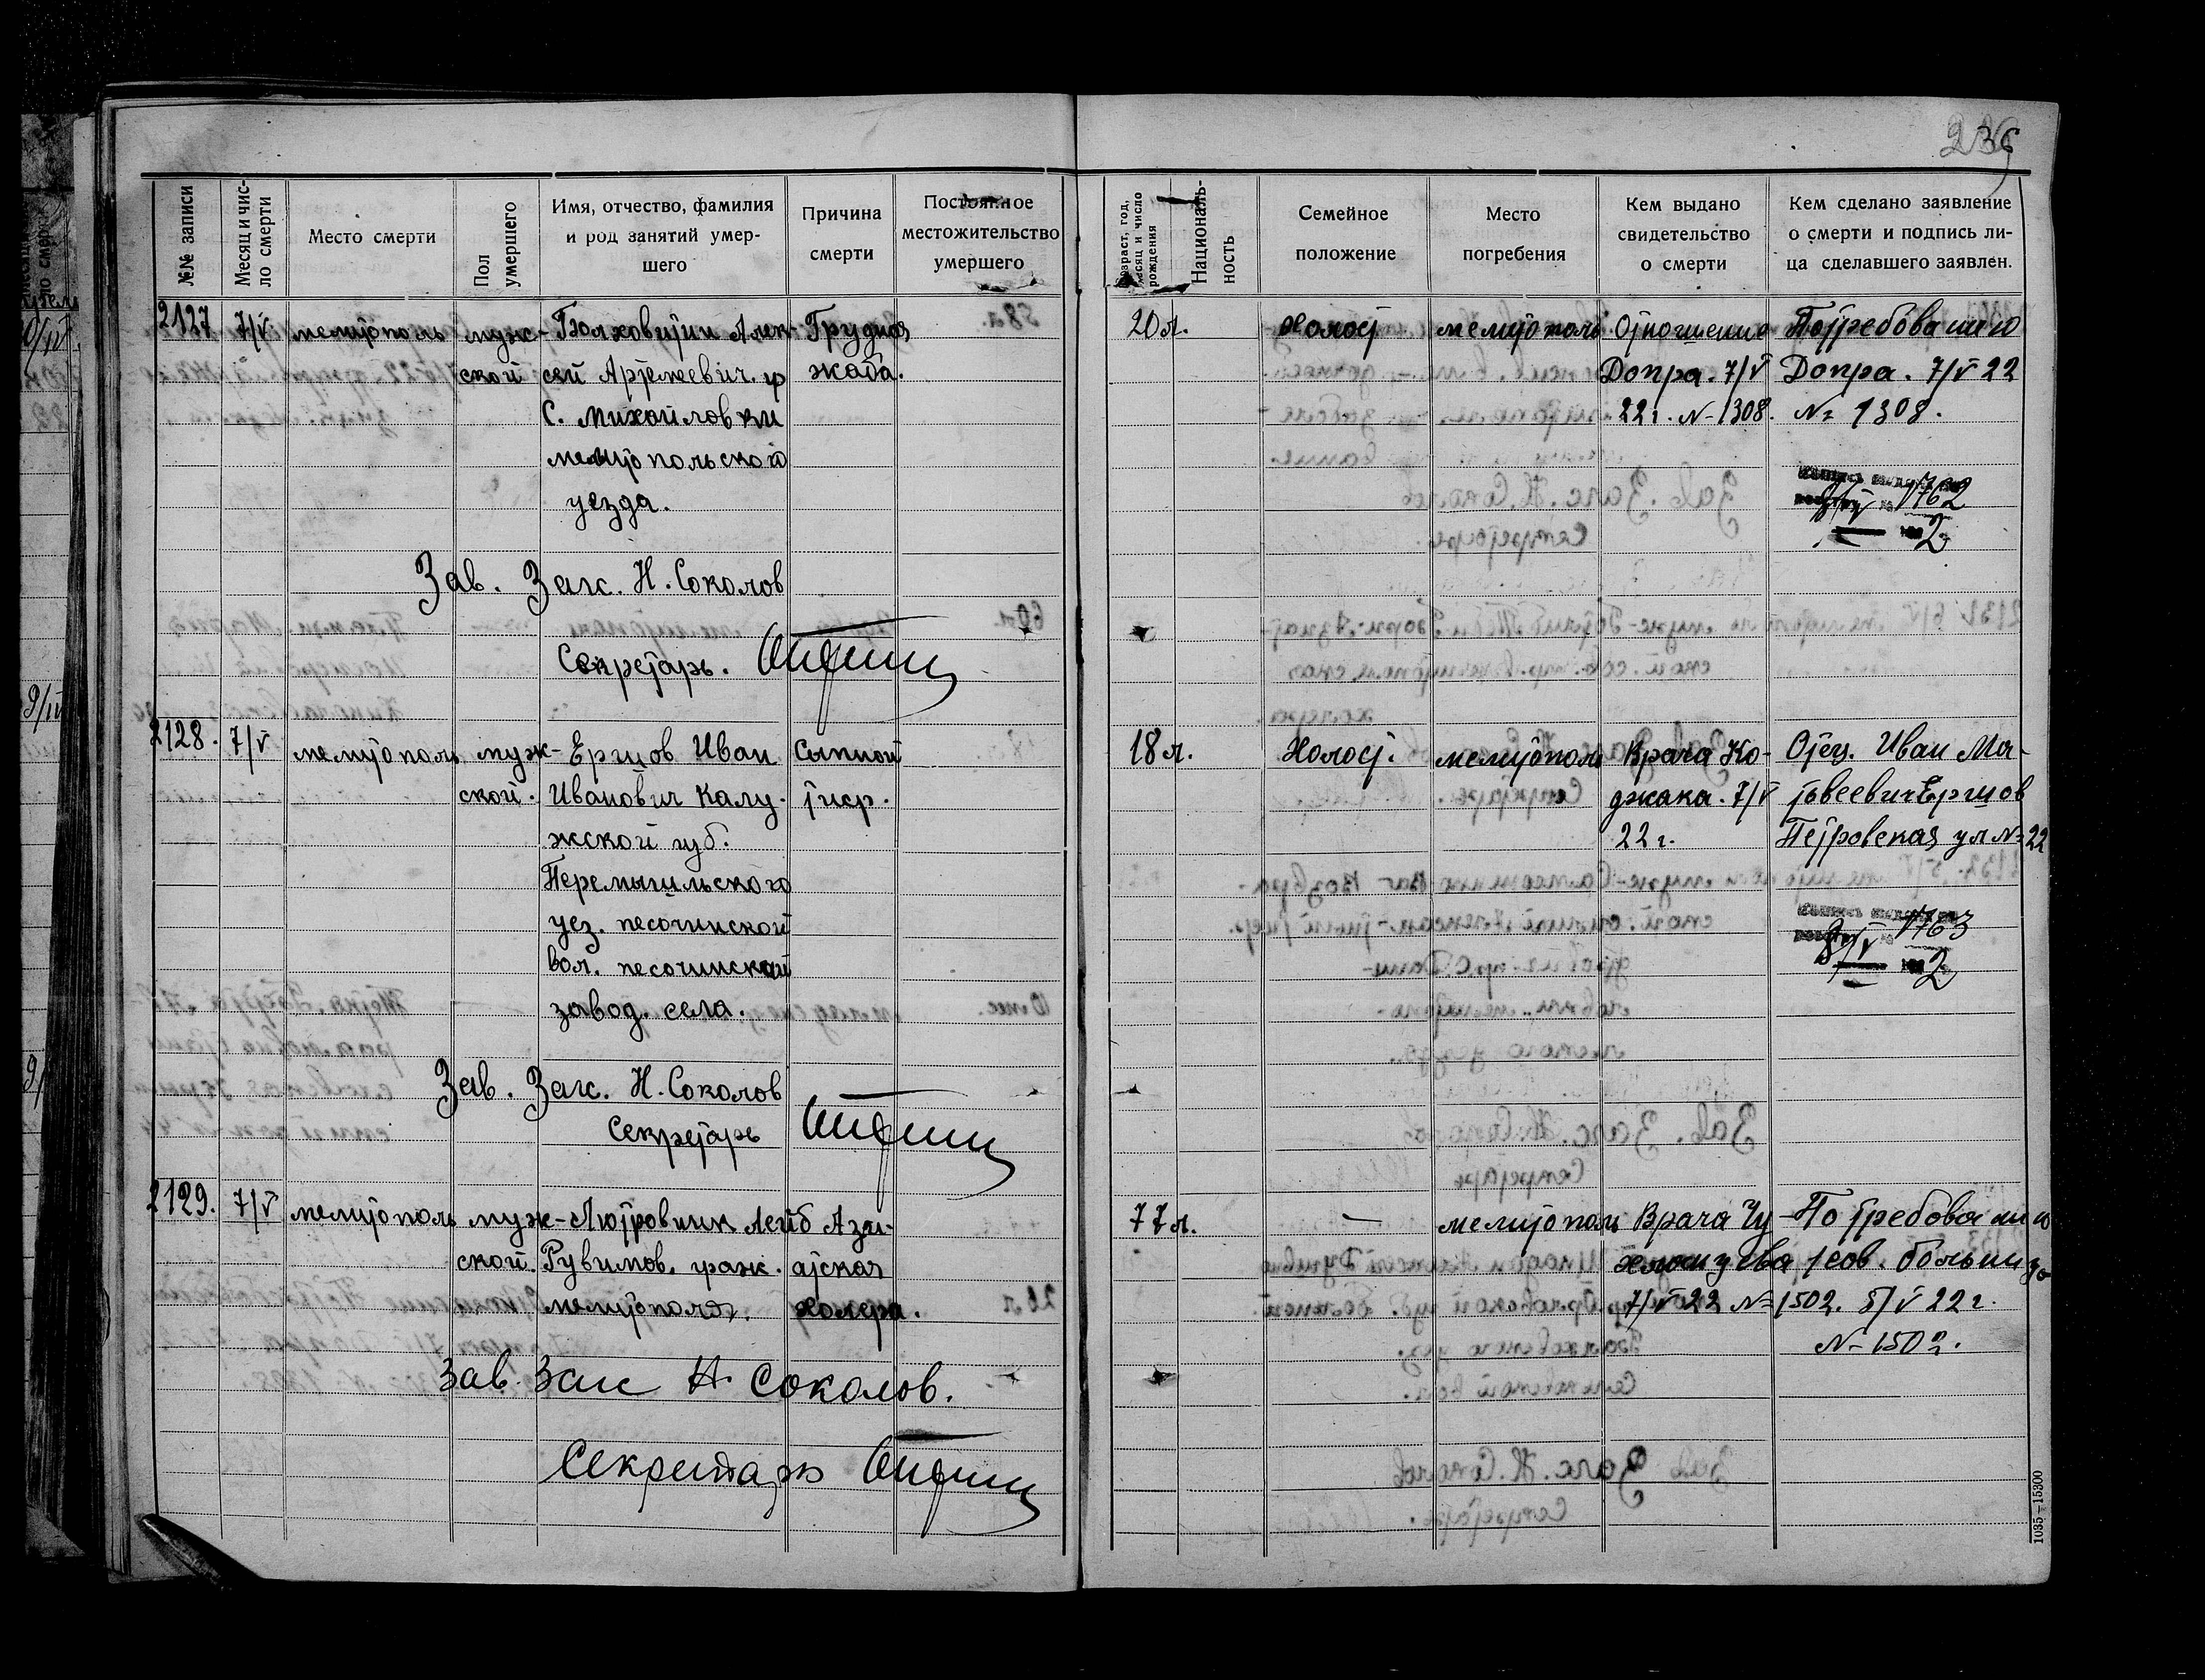 236
№№ записи
Месяц и число смерти
Место смерти
Пол умершего
Имя, отчество, фамилия и род занятий умершего
Причина смерти
Постоянное местожительство умершего
Возраст, год, месяц и число рождения
Националь-ность
Семейное положение
Место погребения
Кем выдано свидетельство о смерти
Кем сделано заявление о смерти и подпись лица сделавшего заявлен.
2127 7/V мелитополь муж- Болховитин Алек- Грудная 20 л. холост мелитополь Отношение По требованию
ской сей Артемевич. гр жаба. Допра. 7/V Допра. 7/V 22
С. Михайловки 22 г. № 1308. № 1308.
мелитопольского
уезда.
1762
2
Зав. Загс. Н. Соколов
Секретарь.
2128. 7/V мелитополь муж- Ершов Иван Сыпной 18 л. Холост. мелитополь Врача Ко- Отец. Иван Ма-
ской. Иванович Калу- тиф. джака. 7/V твеевич Ершов
жской губ. 22 г. Петровская ул № 22
Перемышльского
уез. песочинской
вол. песочинской
завод. села.
1763
2
Зав. Загс. Н. Соколов
Секретарь
2129. 7/V мелитополь муж- Лютровник Лейб Ази- 77 л. — мелитополь Врача По требованию
ской. Рувимов. граж. атская 1 сов. больницы
мелитополя. холера. 7/V 22 № 1502. 5/V 22 г.
№ 1502.
Зав. Загс Н. Соколов.
Секретарь
1035—15300